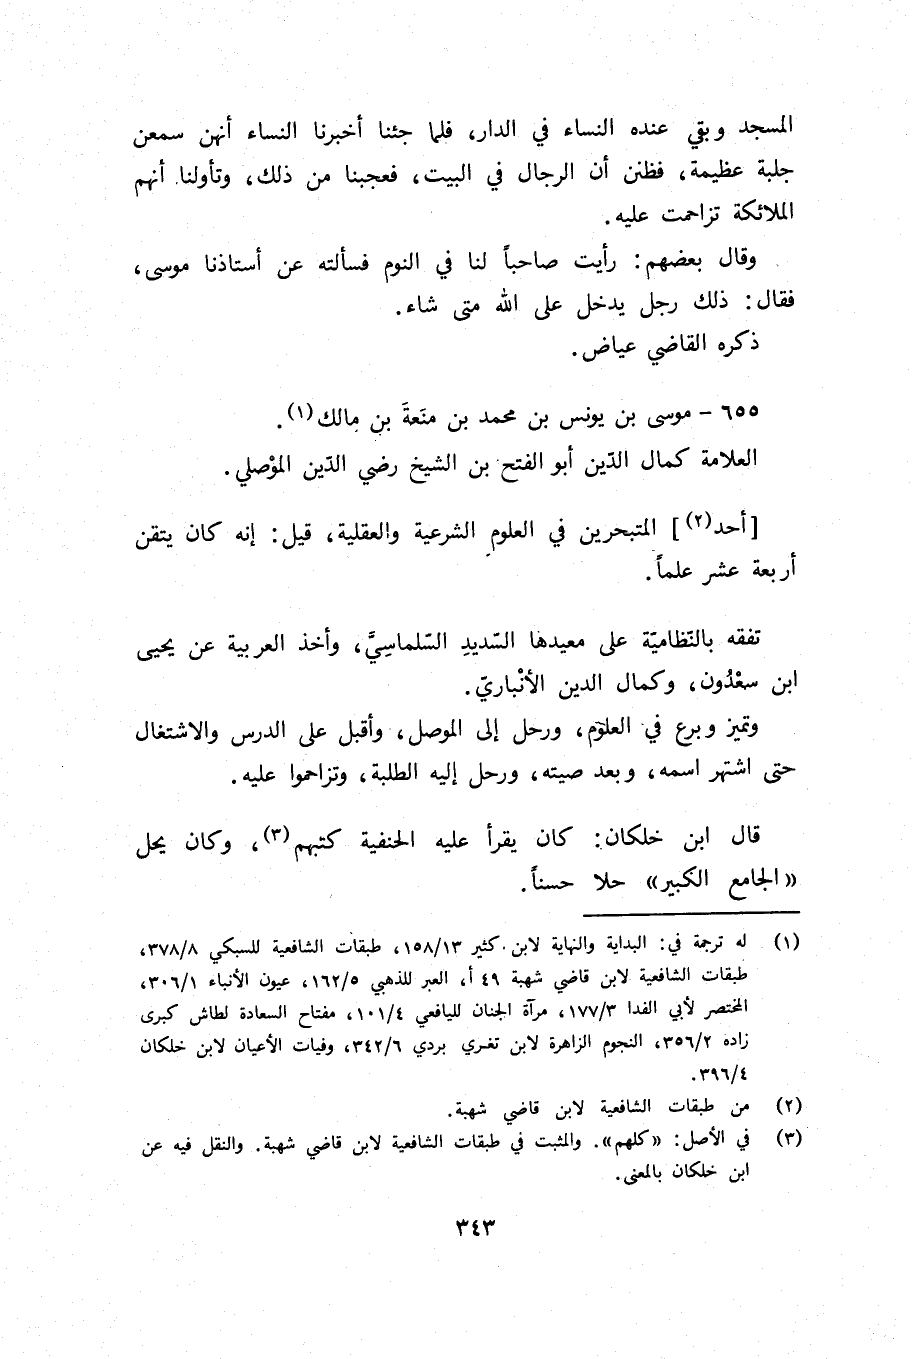 المسجد وبقي عنده النساء في الدار، فلما جئنا أخبرنا النساء أنهن سمعن
جلبة عظيمة، فظنن أن الرجال في البيت، فعجبنا من ذلك، وتأولنا أنهم
الملائكة تزاحمت عليه.
وقال بعضهم: رأيت صاحباً لنا في النوم فسألته عن أستاذنا موسى،
فقال: ذلك رجل يدخل على الله متى شاء.
ذكره القاضي عياض.
٦٥٥ - موسى بن يونس بن محمد بن منَعةَ بن مالك(١).
العلامة كمال الدّين أبو الفتح بن الشيخ رضي الدّين الموْصلي.
[أحد(٢)] المتبحرين في العلوم الشرعية والعقلية، قيل: إنه كان يتقن
أربعة عشر علماً.
تفقه بالنّظاميّة على معيدها السّديدِ السّلماسِيَّ، وأخذ العربية عن يحيى
ابن سعْدُون، وكمال الدين الأنْباريّ.
وتميز وبرع في العلوم، ورحل إلى الموصل، وأقبل على الدرس والاشتغال
حتى اشتهر اسمه، وبعد صيته، ورحل إليه الطلبة، وتزاحموا عليه.
قال ابن خلكان: كان يقرأ عليه الحنفية كتبهم(٣)، وكان يحل
«الجامع الكبير» حلا حسناً.
(١) له ترجمة في: البداية والنهاية لابن كثير ١٥٨/١٣، طبقات الشافعية للسبكي ٣٧٨/٨،
طبقات الشافعية لابن قاضي شهبة ٤٩ أ، العبر للذهبي ١٦٢/٥، عيون الأنباء ٣٠٦/١،
المختصر لأبي الفدا ١٧٧/٣، مرآة الجنان لليافعي ١٠١/٤، مفتاح السعادة لطاش كبرى
زاده ٣٥٦/٢، النجوم الزاهرة لابن تغري بردي ٣٤٢/٦، وفيات الأعيان لابن خلكان
٣٩٦/٤.
(٢) من طبقات الشافعية لابن قاضي شهبة.
(٣) في الأصل: «كلهم». والمثبت في طبقات الشافعية لابن قاضي شهبة. والنقل فيه عن
ابن خلكان بالمعنى.
٣٤٣